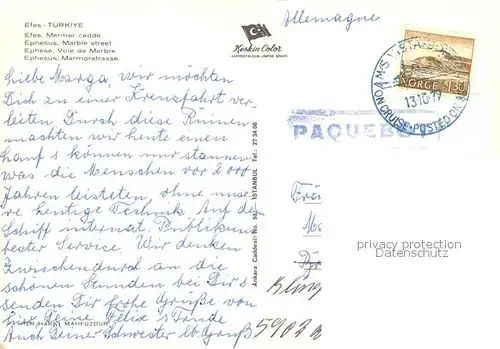 Efes - TÜRKIYE
Efes, Mermer cadde
Ephesus, Marble street
Ephése, Voie de Marbre
Ephesus, Marmorstrasse
Keskin Color
Allemagne
NORGE 1,30
M/S VISTAFJORD
13.10.79
ON CRUISE · POSTED
PAQUEBOT
Liebe Marga, wir möchten
Dich zu einer Kreuzfahrt ver-
leiten Durch diese Ruinen
machten wir heute einen
können nur staunen
was die Menschen vor 2000
Jahren leisteten, ohne unse-
re heutige Technik Auf dem
Schiff internat. Publikum
bester Service. Wir denken
Zwischendurch an die
schönen Stunden bei Dir &
senden Dir frohe Grüße von
Deine Felix
Auch Deiner Schwester lb. Gruß
HAKKI MAHFUZDUR
Ankara Caddesi No. ISTANBUL Tel.: 27 34 06
privacy protection
Datenschutz